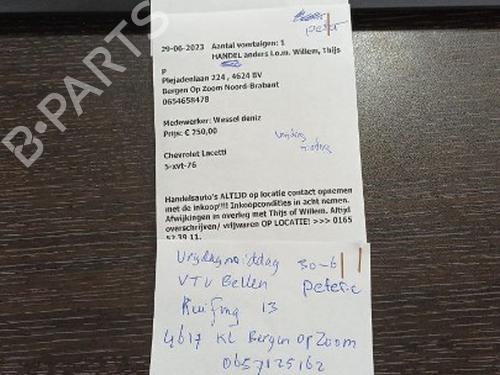 peter
29-06-2023 Aantal voertuigen: 1
HANDEL anders i.o.m. Willem, Thijs
P
Plejadenlaan 224 , 4624 BV
Bergen Op Zoom Noord-Brabant
0654658478
Medewerker: Wessel deniz
Prijs: € 250,00
Vrijdag
middag
Chevrolet Lacetti
5-xvt-76
Handelsauto's ALTIJD op locatie contact opnemen
met de inkoop!!!! Inkoopcondities in acht nemen.
Afwijkingen in overleg met Thijs of Willem. Altijd
overschrijven/ vrijwaren OP LOCATIE! >>> 0165
52 39 11.
Vrijdagmiddag 30-6
VTV Bellen peter.c
13
4617 KL Bergen op Zoom
0657125162
B-PARTS